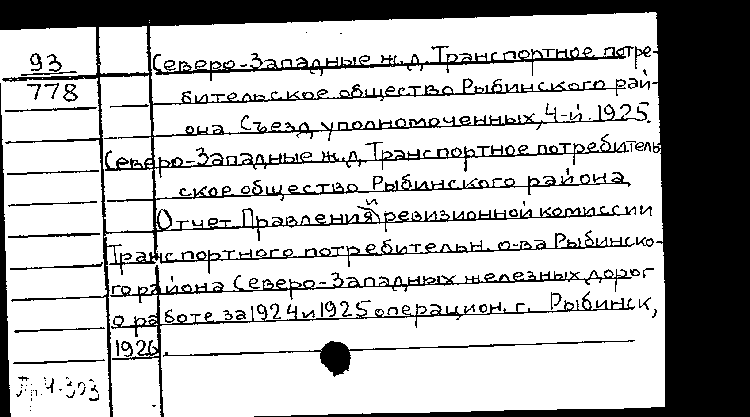 93
778
Северо-Западные ж.д. Транспортное потре-
бительское общество Рыбинского рай-
она. Съезд уполномоченных, 4-й. 1925.
Северо-Западные ж.д. Транспортное потребитель
ское общество Рыбинского района.
Отчет Правления и ревизионной комиссии
Транспортного потребительн. о-ва Рыбинско-
го района Северо-Западных железных дорог
о работе за 1924 и 1925 операцион. г. Рыбинск,
1926.
Пр. Ч-303